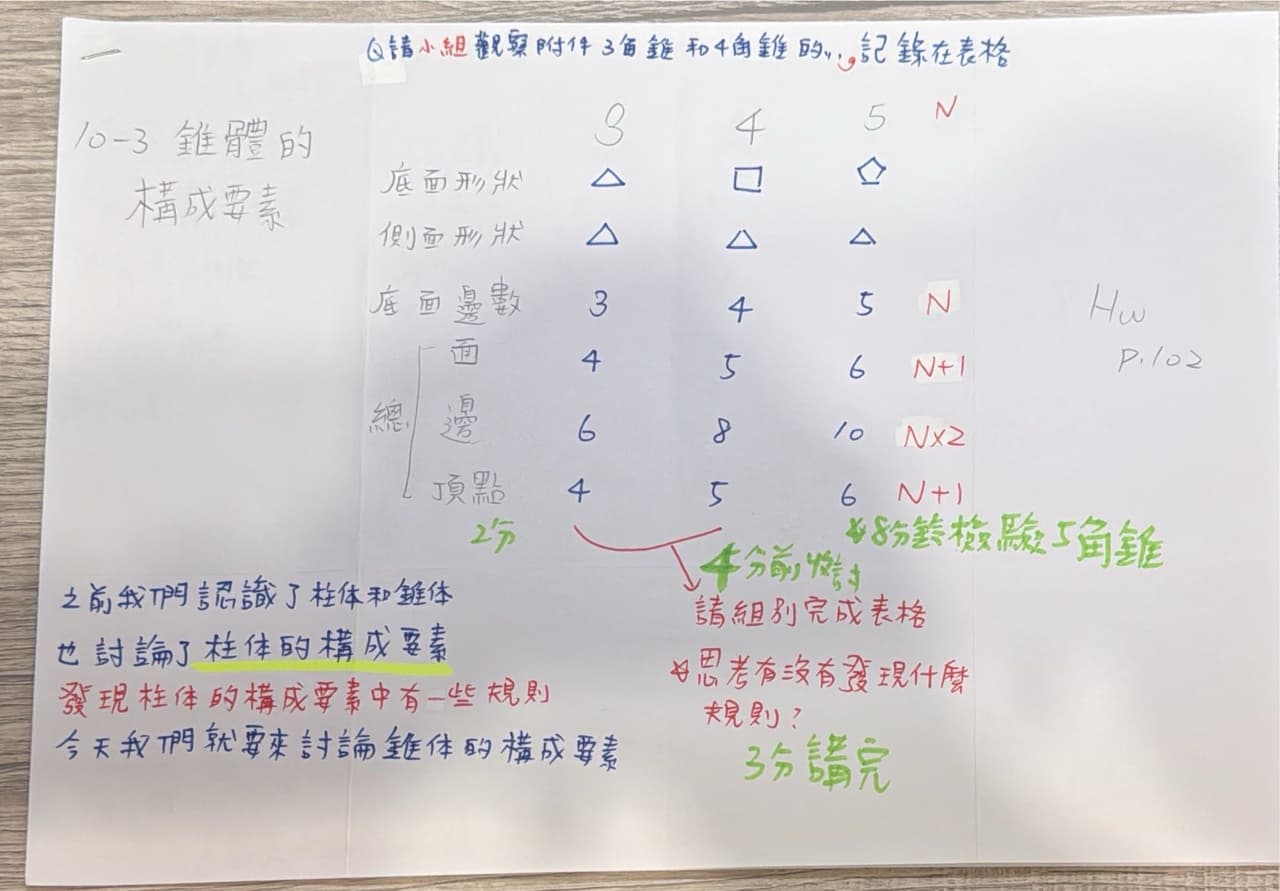 Q請小組觀察附件3角錐和4角錐的...,記錄在表格
10-3 錐體的
構成要素
3 4 5 N
底面形狀 △ □ ⬠
側面形狀 △ △ △
底面邊數 3 4 5 N
面 4 5 6 N+1
總 邊 6 8 10 N×2
頂點 4 5 6 N+1
Hw
P.102
2分
8分鈴檢驗5角錐
4分前收討
請組別完成表格
思考有沒有發現什麼
規則?
3分講完
之前我們認識了柱体和錐体
也討論了柱体的構成要素
發現柱体的構成要素中有一些規則
今天我們就要來討論錐体的構成要素